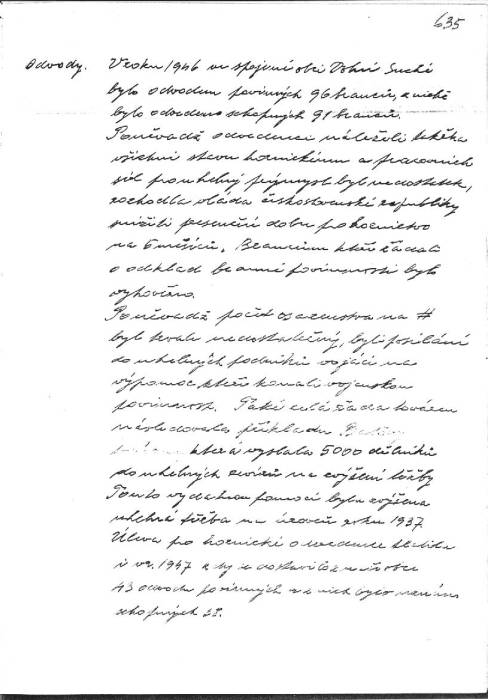 635
Odvody. V roku 1946 ve spojené obci Dolní Suché
bylo odvodem povinných 96 branců, z nichž
bylo odvedeno schopných 91 branců.
Poněvadž odvedenci náleželi takřka
všichni stavu hornickému a pracovních
sil pro uhelný průmysl byl nedostatek,
rozhodla vláda československé republiky
snížiti presenční dobu pro hornictvo
na 5 měsíců. Brancům kteří žádali
o odklad branné povinnosti bylo
vyhověno.
Poněvadž počet osazenstva na #
byl stále nedostatečný, byli posíláni
do uhelných podniků vojáci na
výpomoc, kteří konali vojenskou
povinnost. Také celá řada továren
následovala příkladu
která vyslala 5000 dělníků
do uhelných revírů na zvýšení těžby
Touto vydatnou pomocí byla zvýšena
uhelná těžba na úroveň roku 1937.
Úleva pro hornické odvedence platila
i v r. 1947 kdy se dostavilo
43 odvodu povinných a z nich bylo uznáno
schopných